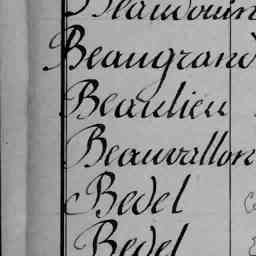 Beaudouin
Beaugrand
Beaulieu
Beauvallon
Bedel
Bedel